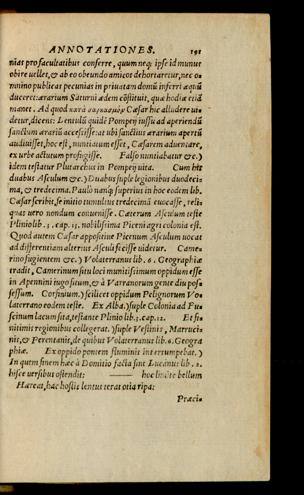 ANNOTATIONES. 191
nias pro facultatibus conferre, quum neq; ipse id munus
obire vellet, & ab eo obeundo amicos dehortaretur, nec o-
mnino publicas pecunias in priuatam domũ inferri aequũ
duceret: aerarium Saturni aedem cõstituit, qua hodie etiã
manet. Ad quod κατὰ Caesar hic alludere vi-
detur, dicens: Lentulũ quidẽ Pompeij iussu ad aperiendũ
sanctum aerariũ accessisse: at ubi sanctius aerarium apertũ
audiuisset, hoc est, nuntiatum esset, Caesarem aduentare,
ex urbe actutum profugisse. Falso nuntiabatur &c.)
idem testatur Plutarchus in Pompeij uita. Cum his
duabus Asculum &c.) Duabus suple legionibus duodeci-
ma, & tredecima. Paulò nanq; superius in hoc eodem lib.
Caesar scribit, se initio tumultus tredecimã euocasse, reli-
quas uero nondum conuenisse. Caeterum Asculum teste
Plinio lib. 3. cap. 13. nobilissima Piceni agri colonia est.
Quod autem Caesar apposuit Picenum Asculum uocat
ad differentiam alterius Asculi fecisse uidetur. Came-
rino fugientem &c.) Volaterranus lib. 6. Geographiae
tradit, Camerinum situ loci munitissimum oppidum esse
in Apennini iugo situm, & à Varranorum gente diu pos-
sessum. Corfinium.) scilicet oppidum Pelignorum Vo
laterrano eodem teste. Ex Alba.) suple Colonia ad Fu-
scinum lacum sita, testante Plinio lib. 3. cap. 12. Et fi-
nitimis regionibus collegerat.) suple Vestinis, Marruci-
nis, & Ferentanis, de quibus Volaterranus lib. 6. Geogra
phiae. Ex oppido pontem fluminis interrumpebat.)
In quem finem haec à Domitio facta sint Lucanus lib. 2.
hisce uersibus ostendit: —— hoc limite bellum
Haereat, hac hostis lentus terat otia ripa:
Praeci-